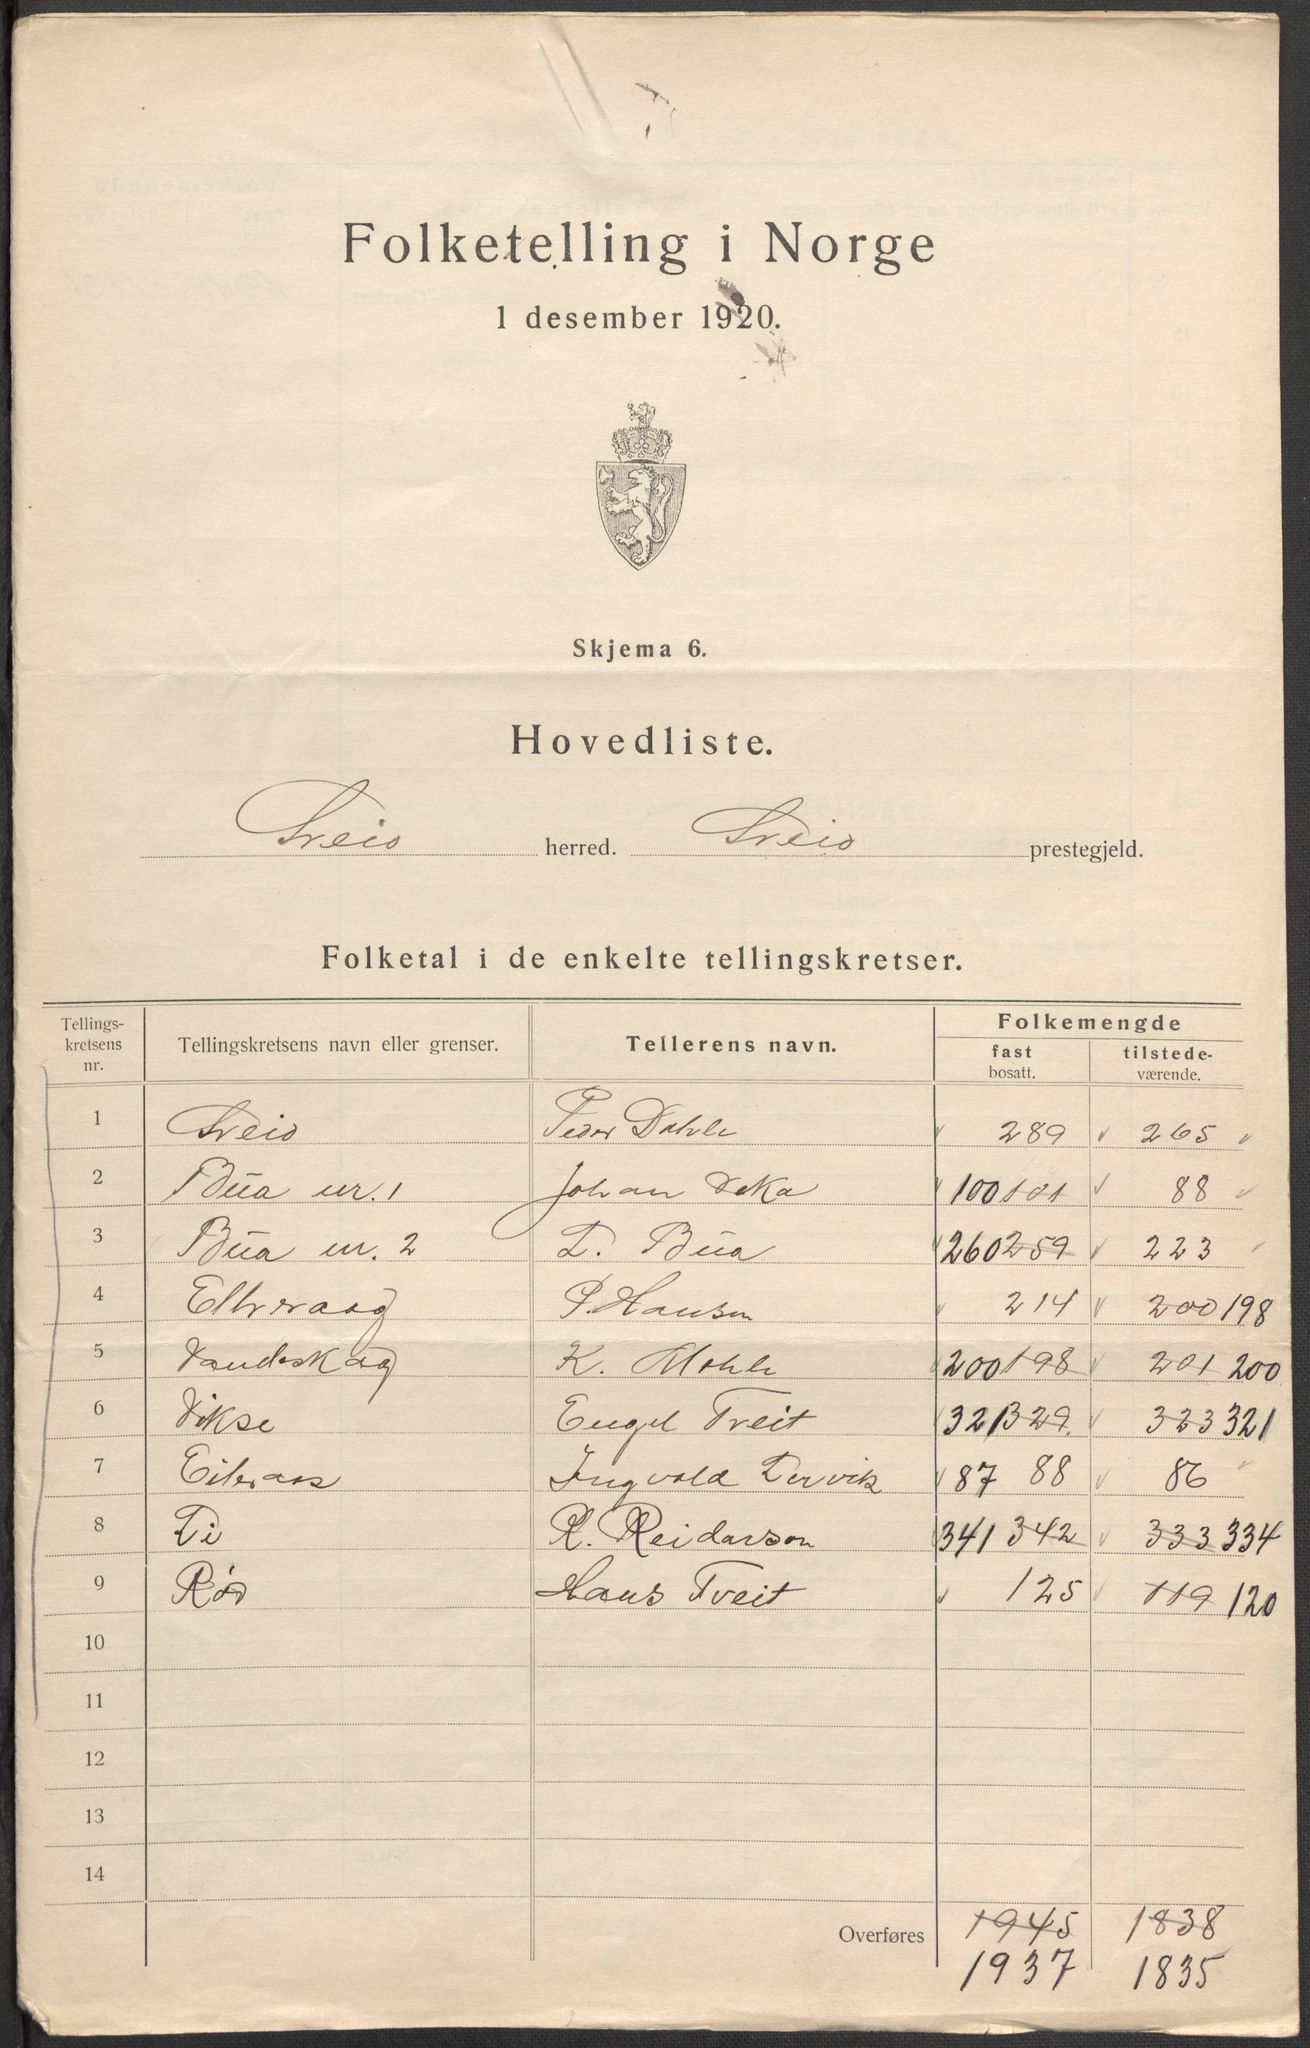 Folketelling i Norge
1 desember 1920.
Skjema 6.
Hovedliste.
Sveio herred. Sveio prestegjeld.
Folketal i de enkelte tellingskretser.
Tellings-kretsens nr. Tellingskretsens navn eller grenser. Tellerens navn. Folkemengde
fast bosatt. tilstede-værende.
1 Sveio Peder Dahle 289 265
2 Bua nr. 1 Johan 100 101 88
3 Bua nr. 2 T. Bua 260 259 223
4 Elleraag P. Hansen 214 200 198
5 Vandaskag K. 200 198 201 200
6 Vikse Engel Tveit 321 329 323 321
7 Eileraas Ingvald Tervik 87 88 86
8 Ti R. Reidarson 341 342 333 334
9 Rød Hans Tveit 125 119 120
10
11
12
13
14
Overføres 1945 1838
1937 1835